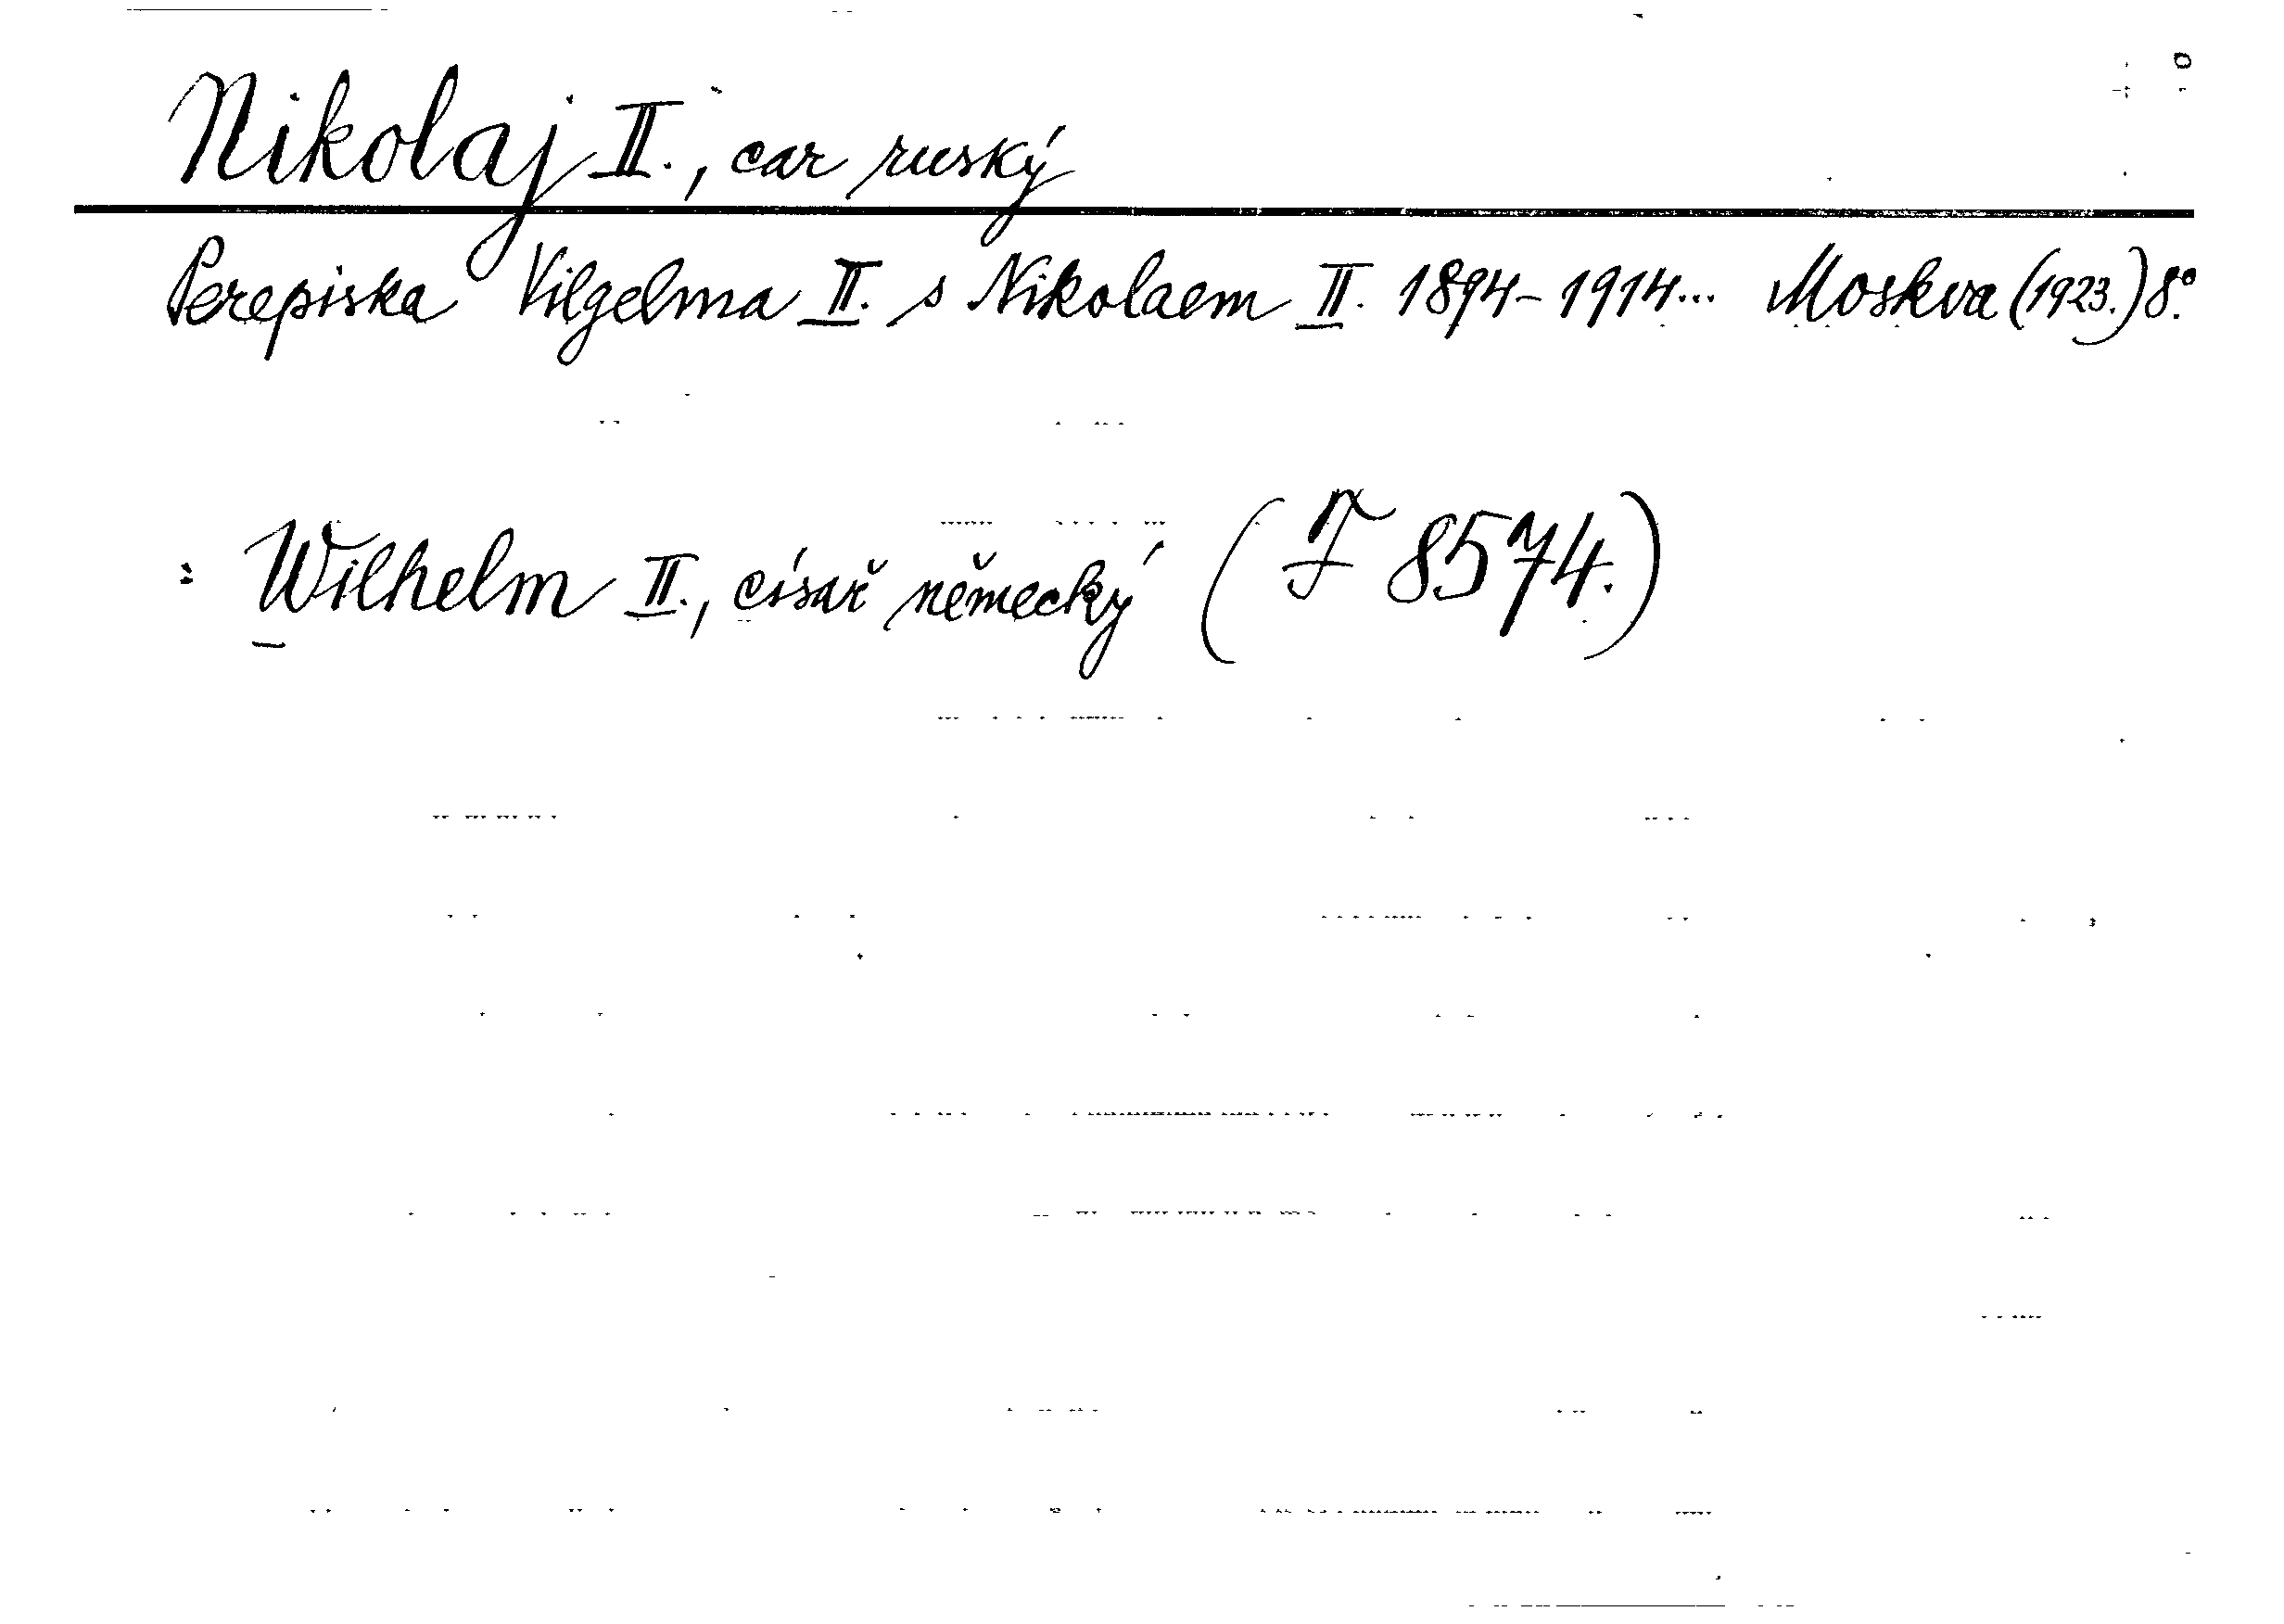 Nikolaj II., car ruský
Perepiska Vilgelma II. s Nikolaem II. 1894-1914... Moskva (1923.) 8°.
: Wilhelm II., císař německý (F 8574.)